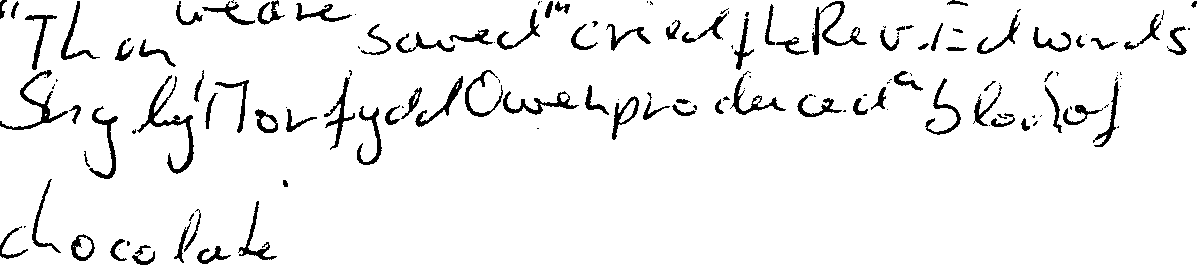 "Then we are saved" cried the Rev. Edwards
Shyly Morfydd Owen produced a block of
chocolate.